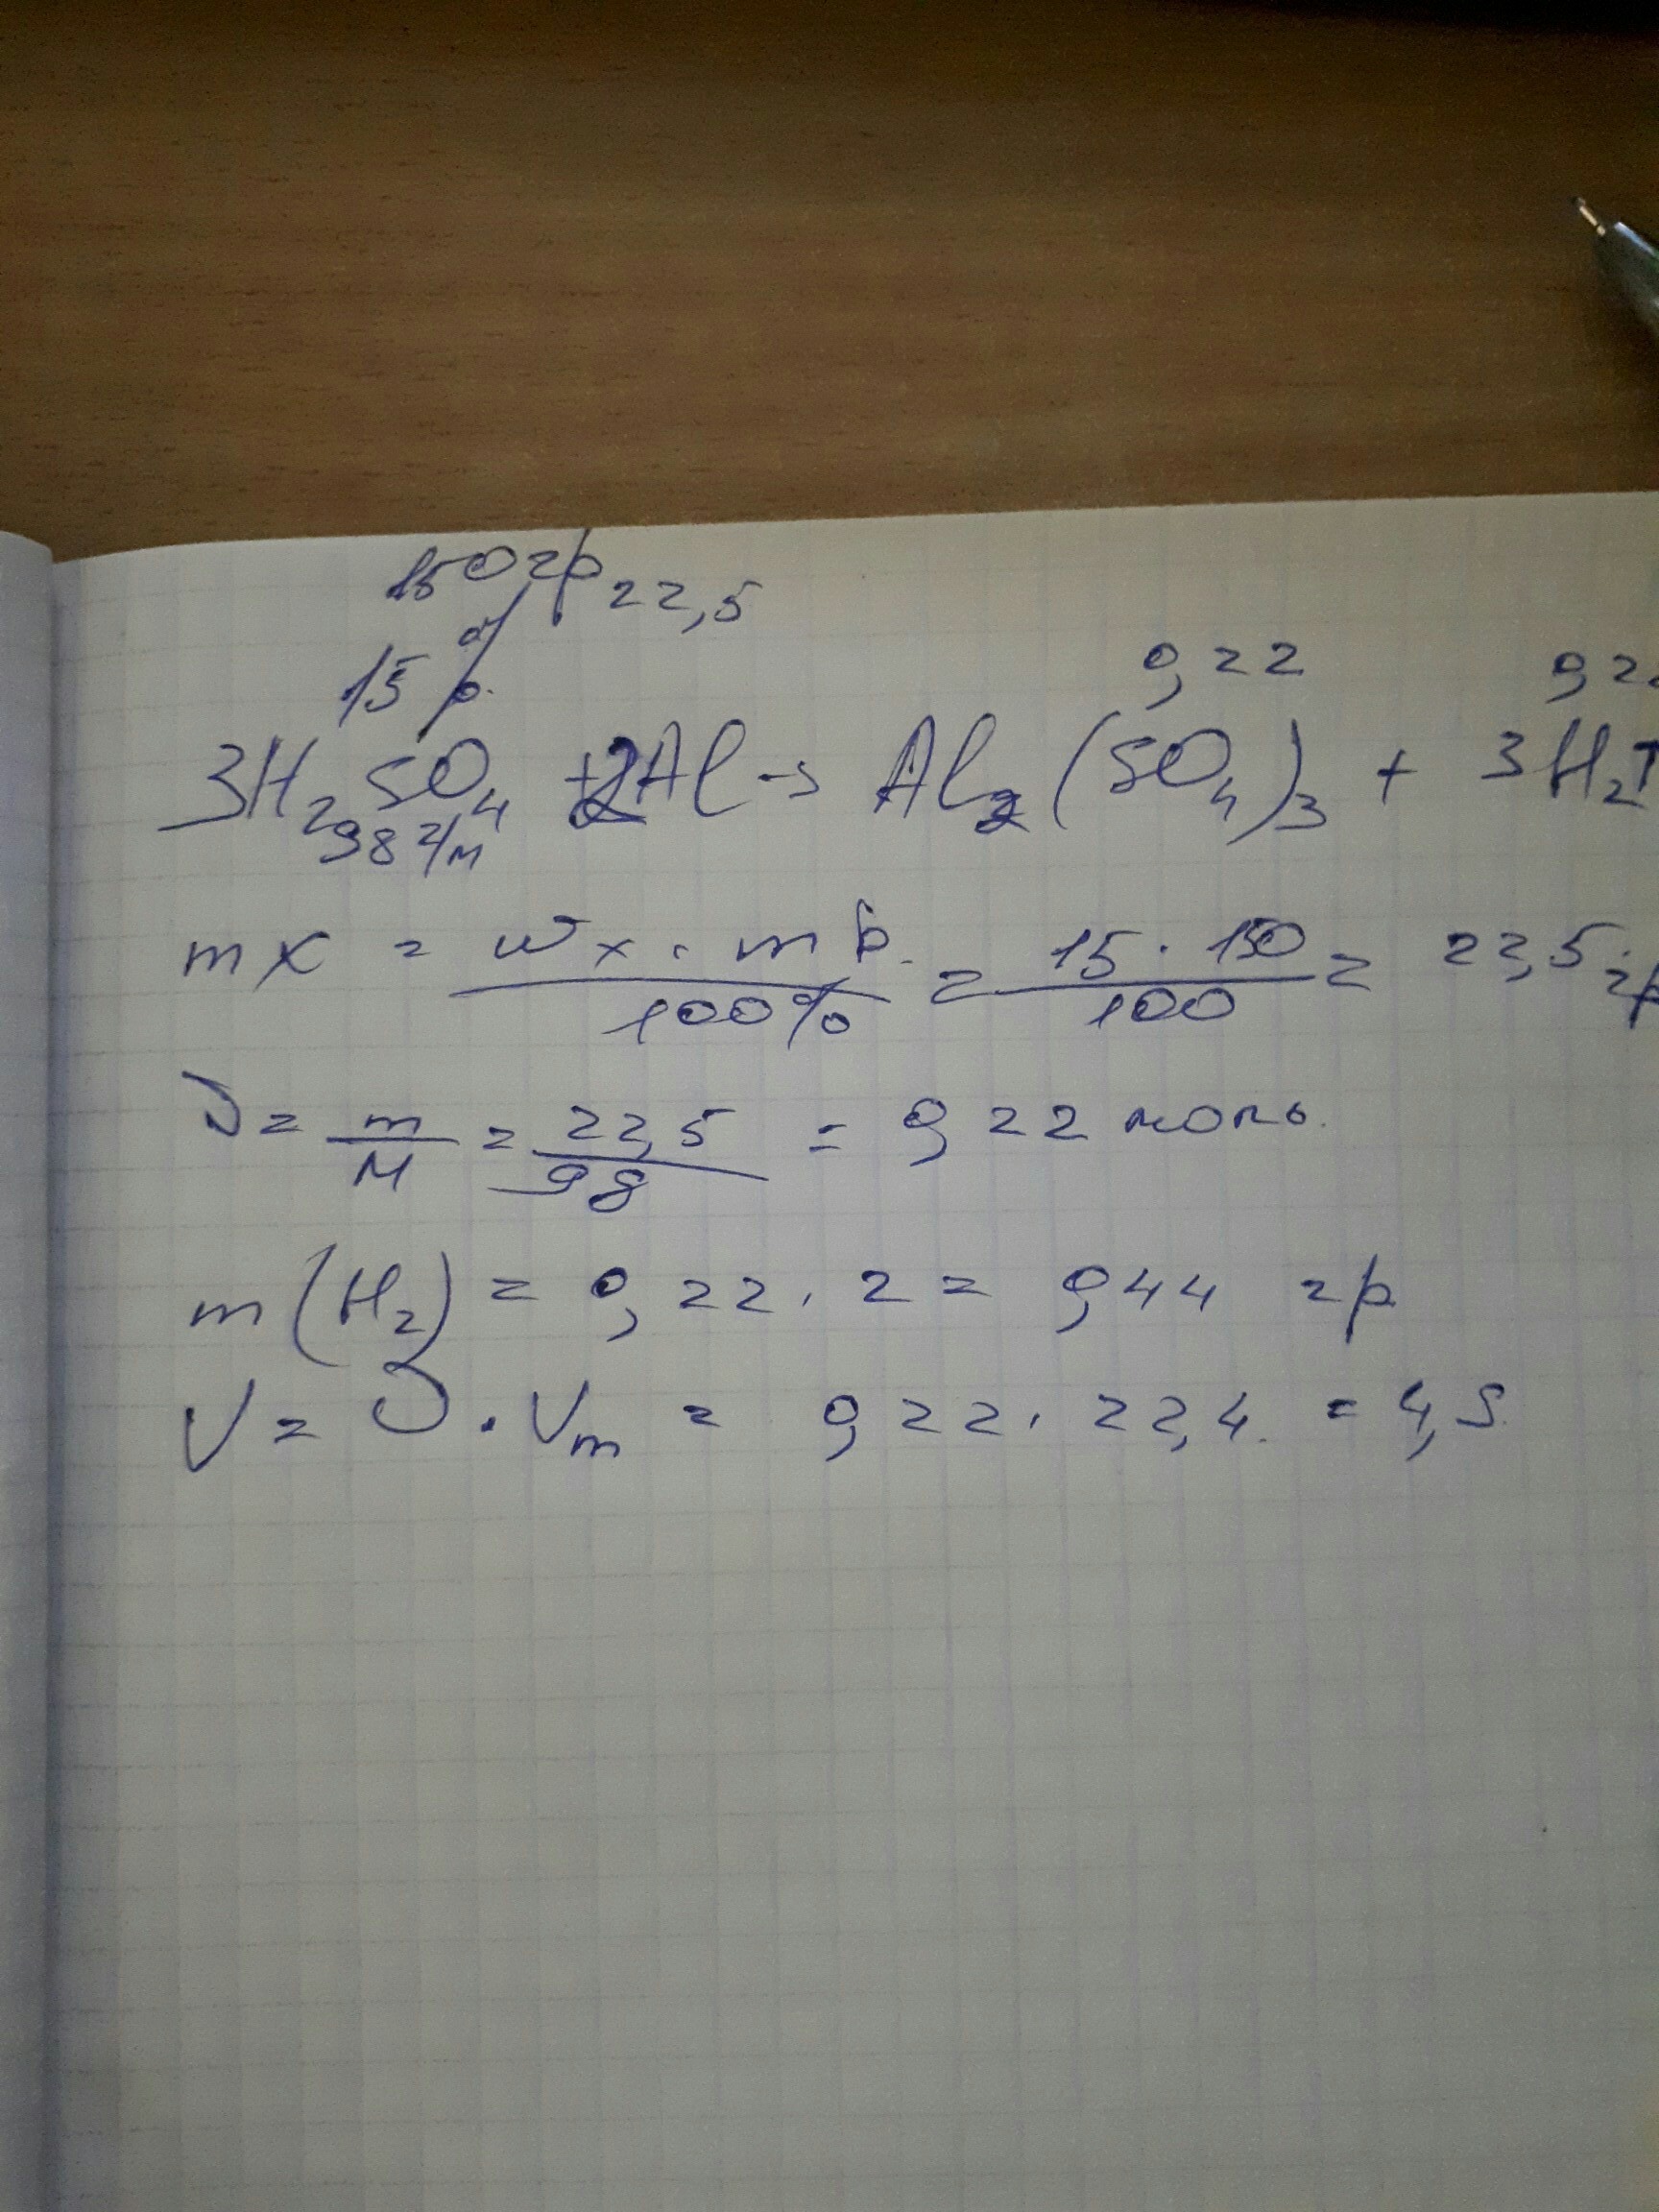 150гр 22,5
15%
0,22 0,22
3H2SO4 + 2Al → Al2(SO4)3 + 3H2↑
98 г/м
mx = wx · mв / 100% = 15 · 150 / 100 = 22,5 гр
ν = m / M = 22,5 / 98 = 0,22 моль.
m(H2) = 0,22 · 2 = 0,44 гр
V = ν · Vm = 0,22 · 22,4 = 4,9